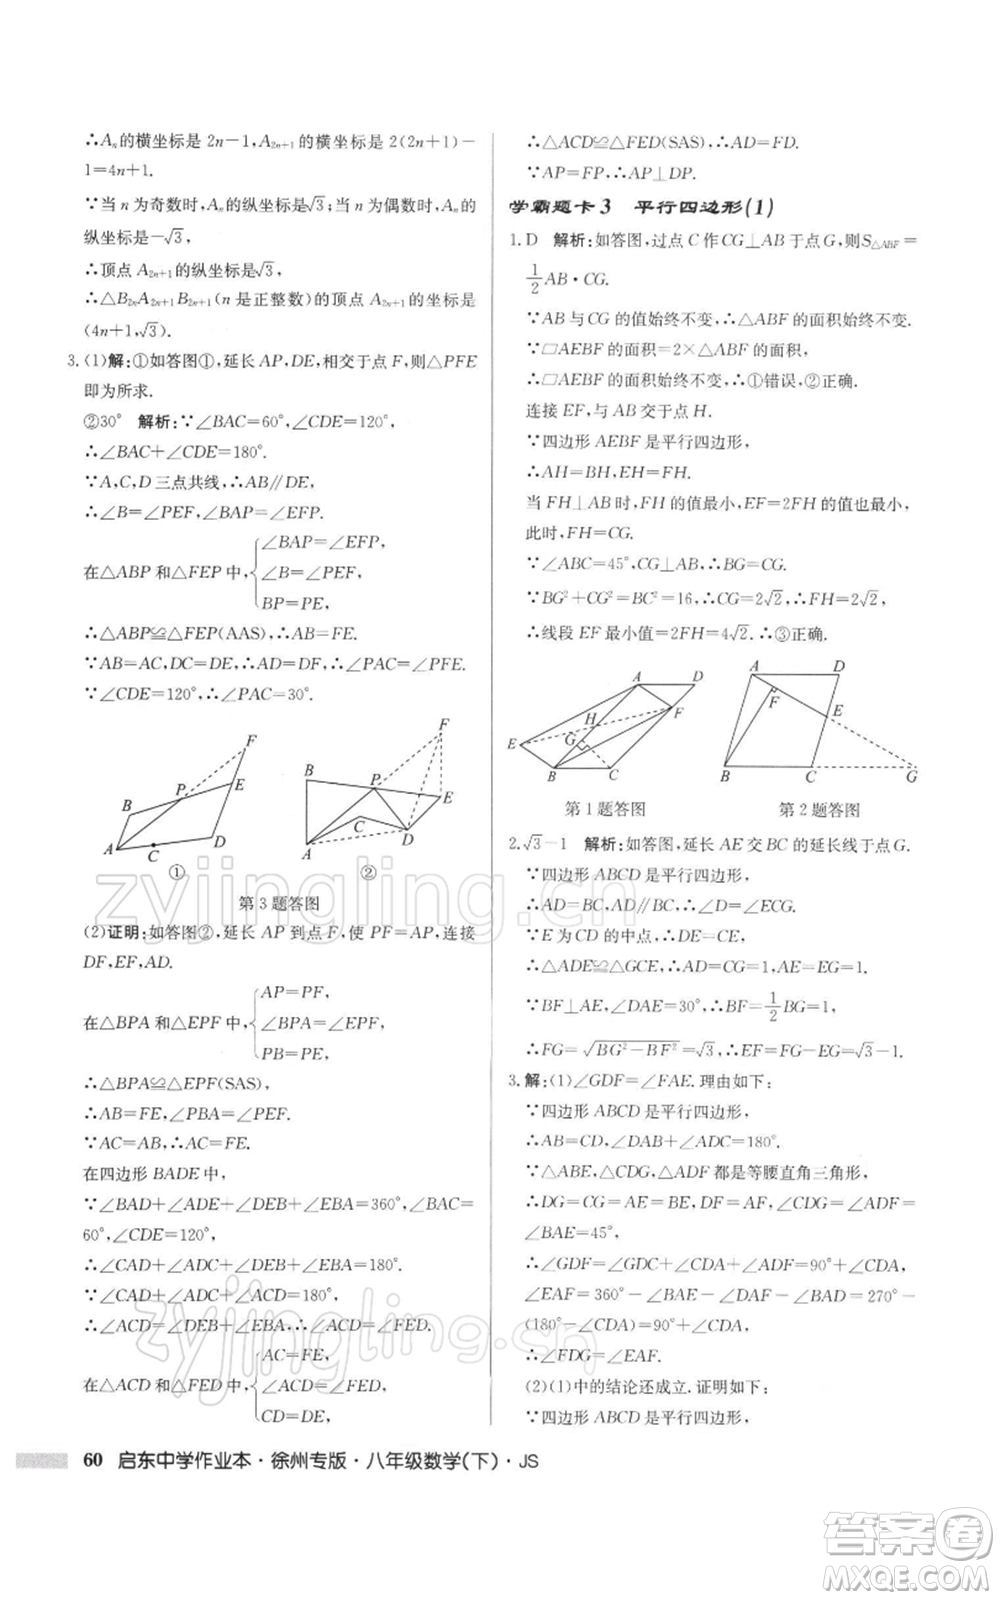 ∴Aₙ的横坐标是 2n−1,A₂ₙ₊₁的横坐标是 2(2n+1)−
1=4n+1.
∵当 n 为奇数时,Aₙ的纵坐标是√3;当 n 为偶数时,Aₙ的
纵坐标是−√3,
∴顶点 A₂ₙ₊₁的纵坐标是√3,
∴△B₂ₙA₂ₙ₊₁B₂ₙ₊₁(n 是正整数)的顶点 A₂ₙ₊₁的坐标是
(4n+1,√3).
3. (1)解:①如答图①,延长 AP,DE,相交于点 F,则△PFE
即为所求.
②30° 解析:∵∠BAC=60°,∠CDE=120°,
∴∠BAC+∠CDE=180°.
∵A,C,D 三点共线,∴AB∥DE,
∴∠B=∠PEF,∠BAP=∠EFP.
在△ABP 和△FEP 中,
∠BAP=∠EFP,
∠B=∠PEF,
BP=PE,
∴△ABP≌△FEP(AAS),∴AB=FE.
∵AB=AC,DC=DE,∴AD=DF,∴∠PAC=∠PFE.
∵∠CDE=120°,∴∠PAC=30°.
F
P
E
B
A
C
D
①
F
B
P
E
C
D
A
②
第 3 题答图
(2)证明:如答图②,延长 AP 到点 F,使 PF=AP,连接
DF,EF,AD.
在△BPA 和△EPF 中,
AP=PF,
∠BPA=∠EPF,
PB=PE,
∴△BPA≌△EPF(SAS),
∴AB=FE,∠PBA=∠PEF.
∵AC=AB,∴AC=FE.
在四边形 BADE 中,
∵∠BAD+∠ADE+∠DEB+∠EBA=360°,∠BAC=
60°,∠CDE=120°,
∴∠CAD+∠ADC+∠DEB+∠EBA=180°.
∵∠CAD+∠ADC+∠ACD=180°,
∴∠ACD=∠DEB+∠EBA,∴∠ACD=∠FED.
在△ACD 和△FED 中,
AC=FE,
∠ACD=∠FED,
CD=DE,
∴△ACD≌△FED(SAS),∴AD=FD.
∵AP=FP,∴AP⊥DP.
学霸题卡 3 平行四边形(1)
1. D 解析:如答图,过点 C 作 CG⊥AB 于点 G,则 S△ABF=
1/2 AB·CG.
∵AB 与 CG 的值始终不变,∴△ABF 的面积始终不变.
∵□AEBF 的面积=2×△ABF 的面积,
∴□AEBF 的面积始终不变,∴①错误,②正确.
连接 EF,与 AB 交于点 H.
∵四边形 AEBF 是平行四边形,
∴AH=BH,EH=FH.
当 FH⊥AB 时,FH 的值最小,EF=2FH 的值也最小,
此时,FH=CG.
∵∠ABC=45°,CG⊥AB,∴BG=CG.
∵BG²+CG²=BC²=16,∴CG=2√2,∴FH=2√2,
∴线段 EF 最小值=2FH=4√2.∴③正确.
A
D
H
F
E
G
B
C
第 1 题答图
A
D
F
E
B
C
G
第 2 题答图
2. √3−1 解析:如答图,延长 AE 交 BC 的延长线于点 G.
∴AD=BC,AD∥BC,∴∠D=∠ECG.
∵E 为 CD 的中点,∴DE=CE,
∴△ADE≌△GCE,∴AD=CG=1,AE=EG=1.
∵BF⊥AE,∠DAE=30°,∴BF=1/2 BG=1,
∴FG=√(BG²−BF²)=√3,∴EF=FG−EG=√3−1.
3. 解:(1)∠GDF=∠FAE. 理由如下:
∵四边形 ABCD 是平行四边形,
∴AB=CD,∠DAB+∠ADC=180°.
∵△ABE,△CDG,△ADF 都是等腰直角三角形,
∴DG=CG=AE=BE,DF=AF,∠CDG=∠ADF=
∠BAE=45°,
∴∠GDF=∠GDC+∠CDA+∠ADF=90°+∠CDA,
∠EAF=360°−∠BAE−∠DAF−∠BAD=270°−
(180°−∠CDA)=90°+∠CDA,
∴∠FDG=∠EAF.
(2)(1)中的结论还成立. 证明如下:
∵四边形 ABCD 是平行四边形,
zyjingling.cn
zyjingling.cn
60 启东中学作业本·徐州专版·八年级数学(下)·JS
答案卷
MXQE.COM